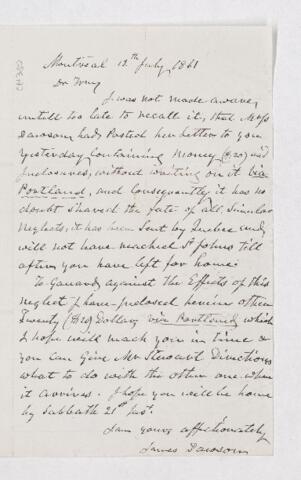 Montreal 12th July 1861
Dr
I was not made aware
untill too late to recall it, that Mrs
Dawson had Posted her letter to you
yesterday Containing Money ($20) and
Inclosures, without writing on it via
Portland, and Consequently it has no
doubt Shared the fate of all Similar
Neglects, it has been Sent by Quebec and
will not have reached St Johns till
after you have left for home.
To Gauard against the Effects of this
neglect I have inclosed herein other
Twenty ($20) Dollars via Portland which
I hope will reach you in time &
you can Give Mr Stewart Directions
what to do with the other one when
it arrives. I hope you will be home
by Sabbath 21st Inst.
I am yours affectionately
James Dawson